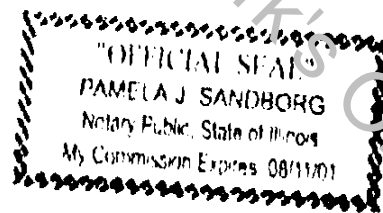 "OFFICIAL SEAL"
PAMELA J. SANDBORG
Notary Public, State of Illinois
My Commission Expires 08/11/01